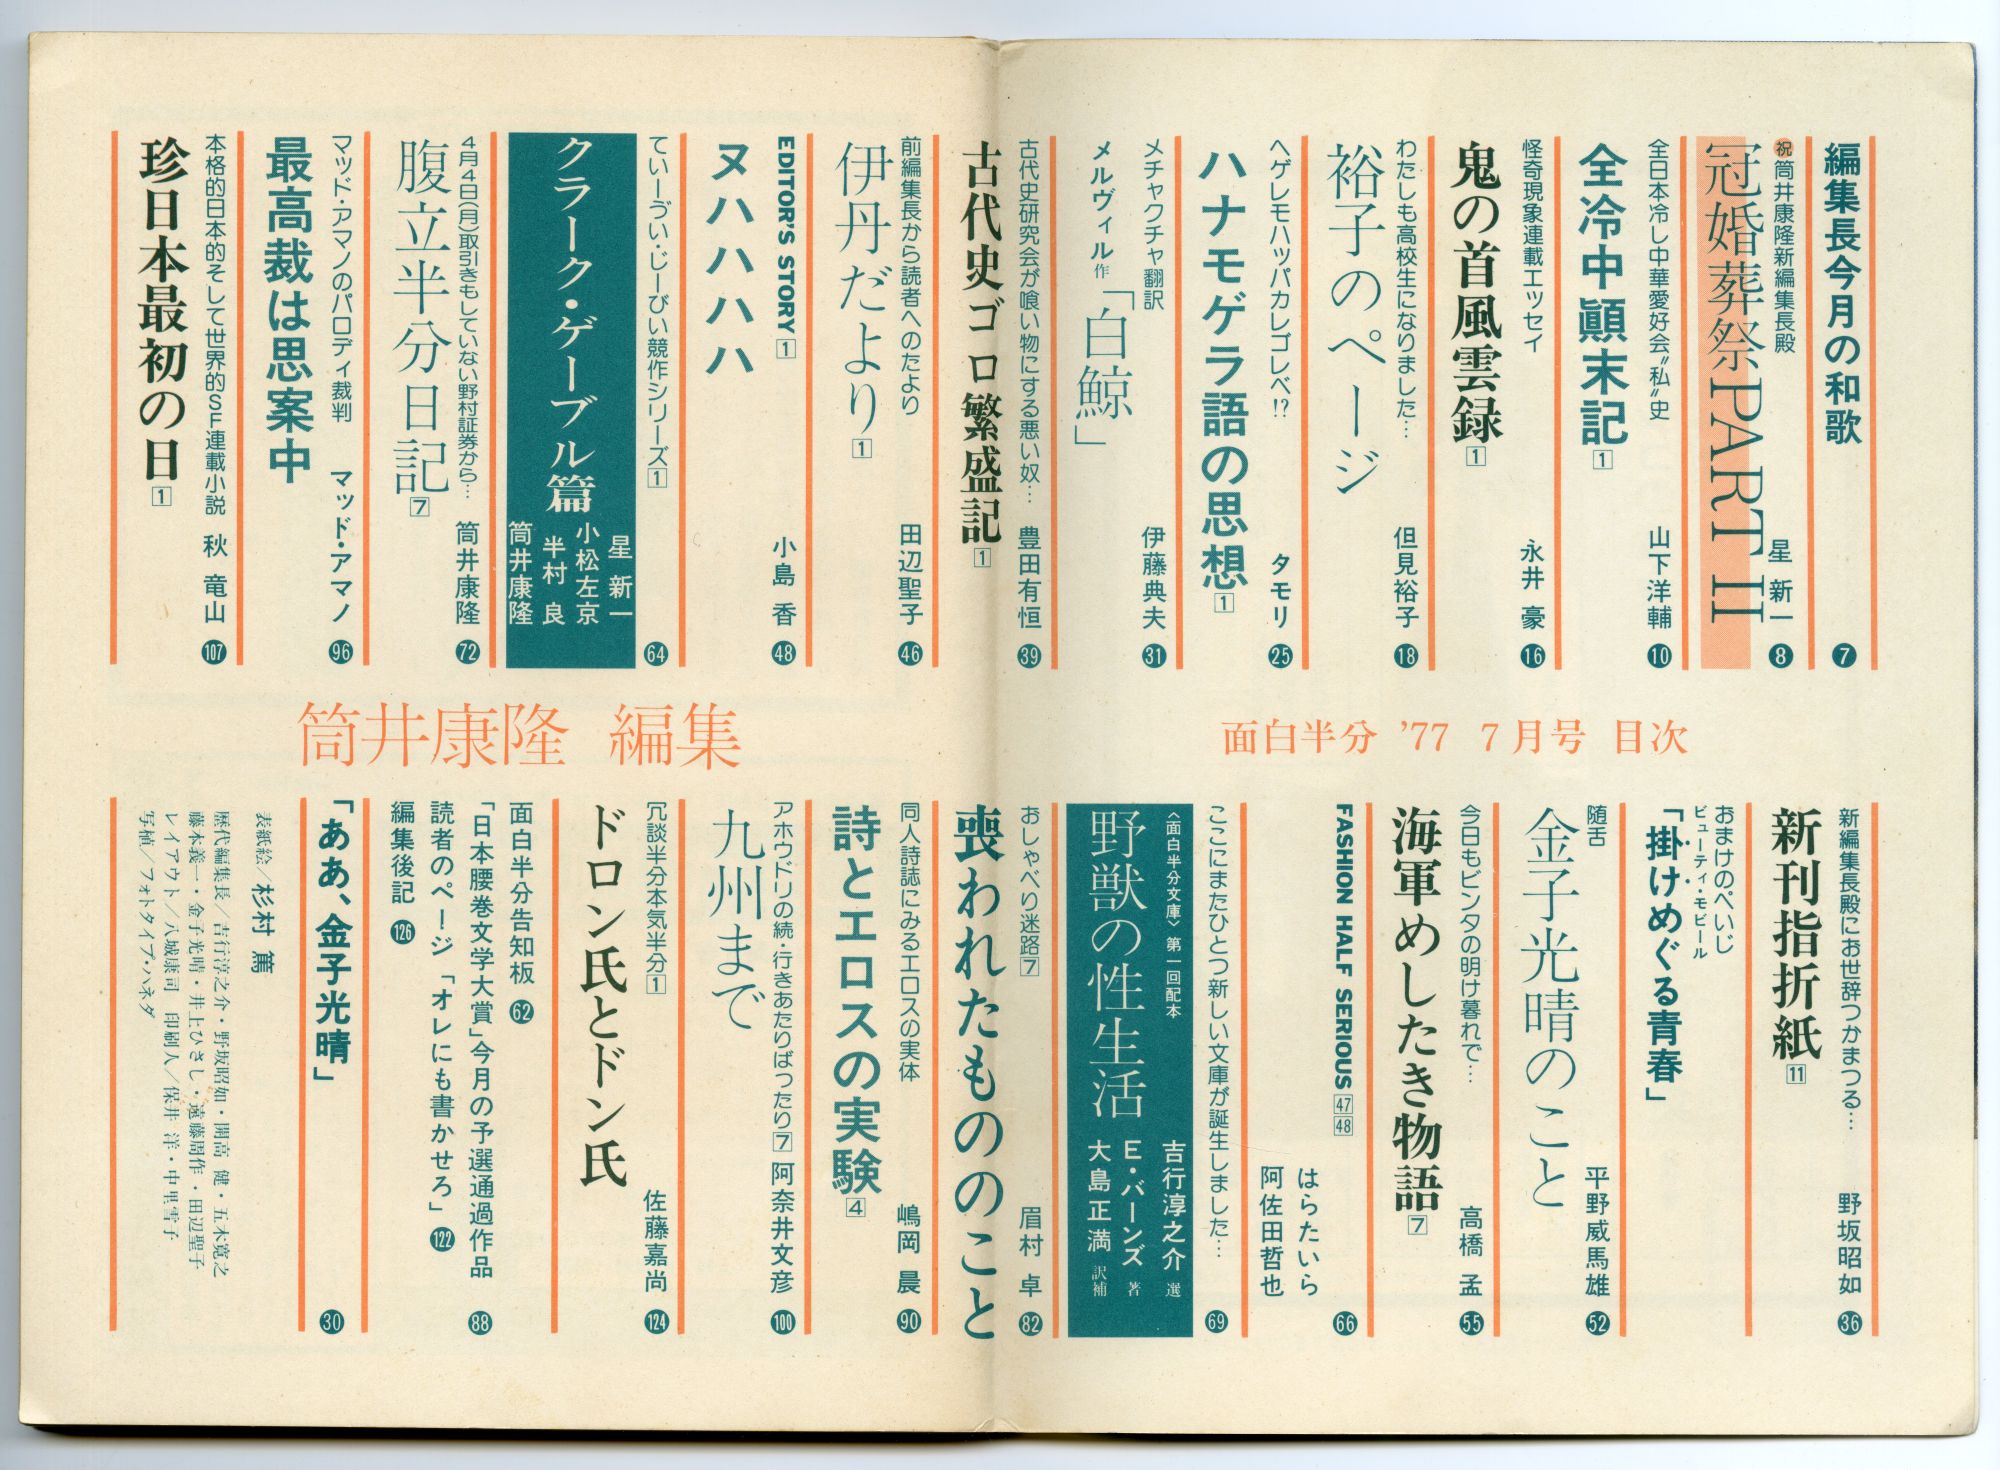 編集長今月の和歌 7
祝 筒井康隆新編集長殿
冠婚葬祭PART II 星 新一 8
全日本冷し中華愛好会〝私〟史
全冷中顚末記 1 山下洋輔 10
怪奇現象連載エッセイ
鬼の首風雲録 1 永井 豪 16
わたしも高校生になりました…
裕子のページ 但見裕子 18
ヘゲレモハッパカレゴレベ!?
ハナモゲラ語の思想 1 タモリ 25
メチャクチャ翻訳
メルヴィル作「白鯨」 伊藤典夫 31
古代史研究会が喰い物にする悪い奴…
古代史ゴロ繁盛記 1 豊田有恒 39
前編集長から読者へのたより
伊丹だより 1 田辺聖子 46
EDITOR'S STORY 1
ヌハハハハ 小島 香 48
てぃーゔい・じーびい競作シリーズ 1 64
クラーク・ゲーブル篇
星 新一
小松左京
半村 良
筒井康隆
4月4日(月)取引きもしていない野村証券から…
腹立半分日記 7 筒井康隆 72
マッド・アマノのパロディ裁判
最高裁は思案中 マッド・アマノ 96
本格的日本的そして世界的SF連載小説
珍日本最初の日 1 秋 竜山 107
面白半分 '77 7月号 目次
筒井康隆 編集
新編集長殿にお世辞つかまつる…
新刊指折紙 11 野坂昭如 36
おまけのぺいじ
ビューティ・モビール
「掛けめぐる青春」
随舌
金子光晴のこと 平野威馬雄 52
今日もビンタの明け暮れで…
海軍めしたき物語 7 高橋 孟 55
FASHION HALF SERIOUS 47 48
はらたいら
阿佐田哲也 66
ここにまたひとつ新しい文庫が誕生しました… 69
〈面白半分文庫〉第一回配本
野獣の性生活
吉行淳之介 選
E・バーンズ 著
大島正満 訳補
おしゃべり迷路 7
喪われたもののこと 眉村 卓 82
同人詩誌にみるエロスの実体
詩とエロスの実験 4 嶋岡 晨 90
アホウドリの続・行きあたりばったり 7
九州まで 阿奈井文彦 100
冗談半分本気半分 1
ドロン氏とドン氏 佐藤嘉尚 124
面白半分告知板 62
「日本腰巻文学大賞」今月の予選通過作品 88
読者のページ「オレにも書かせろ」 122
編集後記 126
「ああ、金子光晴」 30
表紙絵/杉村 篤
歴代編集長/吉行淳之介・野坂昭如・開高 健・五木寛之
藤本義一・金子光晴・井上ひさし・遠藤周作・田辺聖子
レイアウト/八城康司 印刷人/保井 洋・中里雪子
写植/フォトタイプ・ハネダ